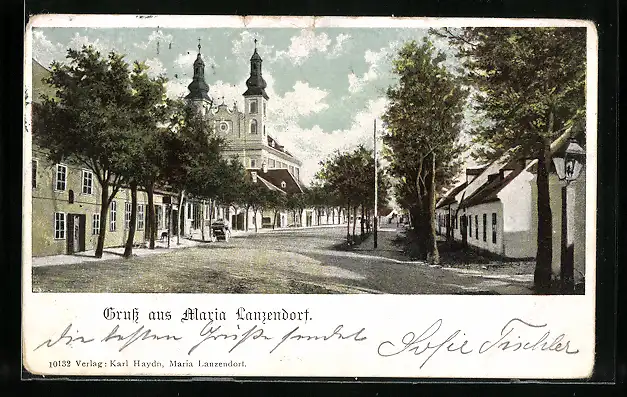 Gruß aus Maria Lanzendorf.
Die besten Grüße sendet Sofie Tischler
10132 Verlag: Karl Haydn, Maria Lanzendorf.